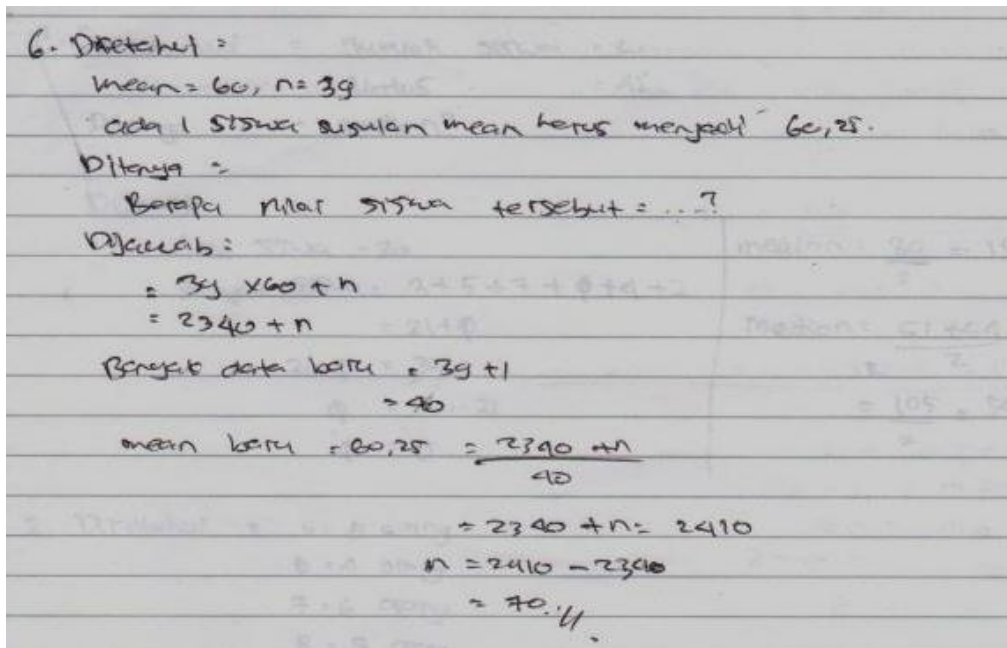 6. Diketahui =
mean = 60, n = 39
ada 1 siswa susulan mean harus menjadi 60,25.
Ditanya =
Berapa nilai siswa tersebut = ...?
Dijawab =
= 39 x 60 + n
= 2340 + n
Banyak data baru = 39 + 1
= 40
mean baru = 60,25 = 2340 + n
40
= 2340 + n = 2410
n = 2410 - 2340
= 70.//.